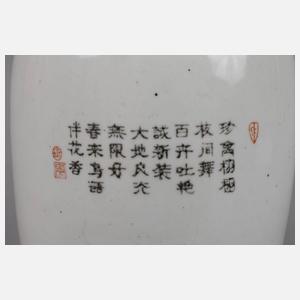 珍禽栩栩
枝间舞
百卉吐艳
試新装
大地
無限好
春来鸟語
伴花香